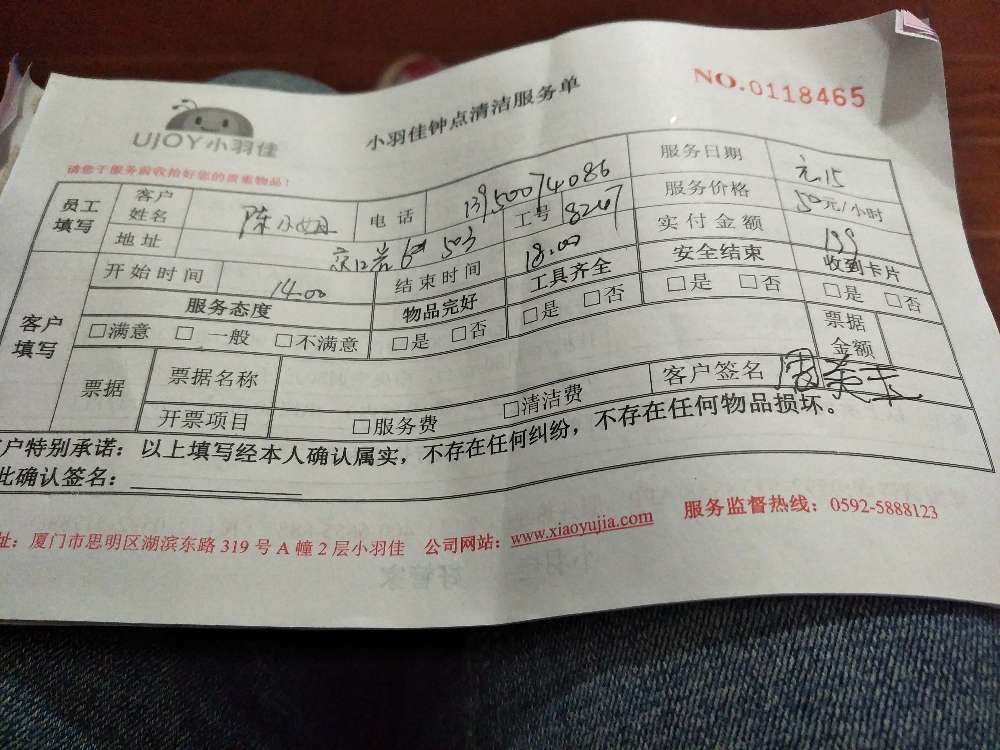 NO.0118465
UJOY小羽佳
小羽佳钟点清洁服务单
请您于服务前收拾好您的贵重物品！
员工填写 客户姓名 陈小姐 电话 13950074086 服务日期 元.15
地址 503 工号 8247 服务价格 50元/小时
实付金额 199
客户填写 开始时间 14.00 结束时间 18.00 工具齐全 安全结束 收到卡片
服务态度 物品完好 □是 □否 □是 □否 □是 □否
□满意 □一般 □不满意 □是 □否
票据 票据名称 票据金额
开票项目 □服务费 □清洁费 客户签名
客户特别承诺：以上填写经本人确认属实，不存在任何纠纷，不存在任何物品损坏。
此确认签名：
址：厦门市思明区湖滨东路 319 号 A 幢 2 层小羽佳 公司网站：www.xiaoyujia.com 服务监督热线：0592-5888123